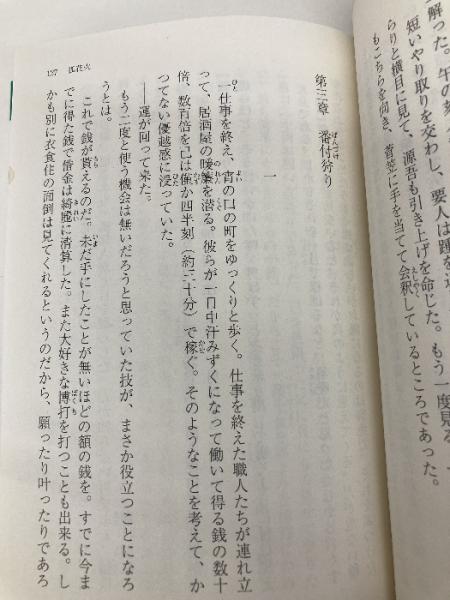 解った。午の刻
短いやり取りを交わし、要人は踵を
らりと横目に見て、源吾も引き上げを命じた。もう一度見る
もこちらを向き、菅笠に手を当てて会釈しているところであった。
第三章　番付狩り
一
一仕事を終え、宵の口の町をゆっくりと歩く。仕事を終えた職人たちが連れ立
って、居酒屋の暖簾を潜る。彼らが一日中汗みずくになって働いて得る銭の数十
倍、数百倍を己は僅か四半刻（約三十分）で稼ぐ。そのようなことを考えて、か
つてない優越感に浸っていた。
――運が回って来た。
もう二度と使う機会は無いだろうと思っていた技が、まさか役立つことになろ
うとは。
これで銭が貰えるのだ。未だ手にしたことが無いほどの額の銭を。すでに今ま
でに得た銭で借金は綺麗に清算した。また大好きな博打を打つことも出来る。し
かも別に衣食住の面倒は見てくれるというのだから、願ったり叶ったりであろ
127　狐花火